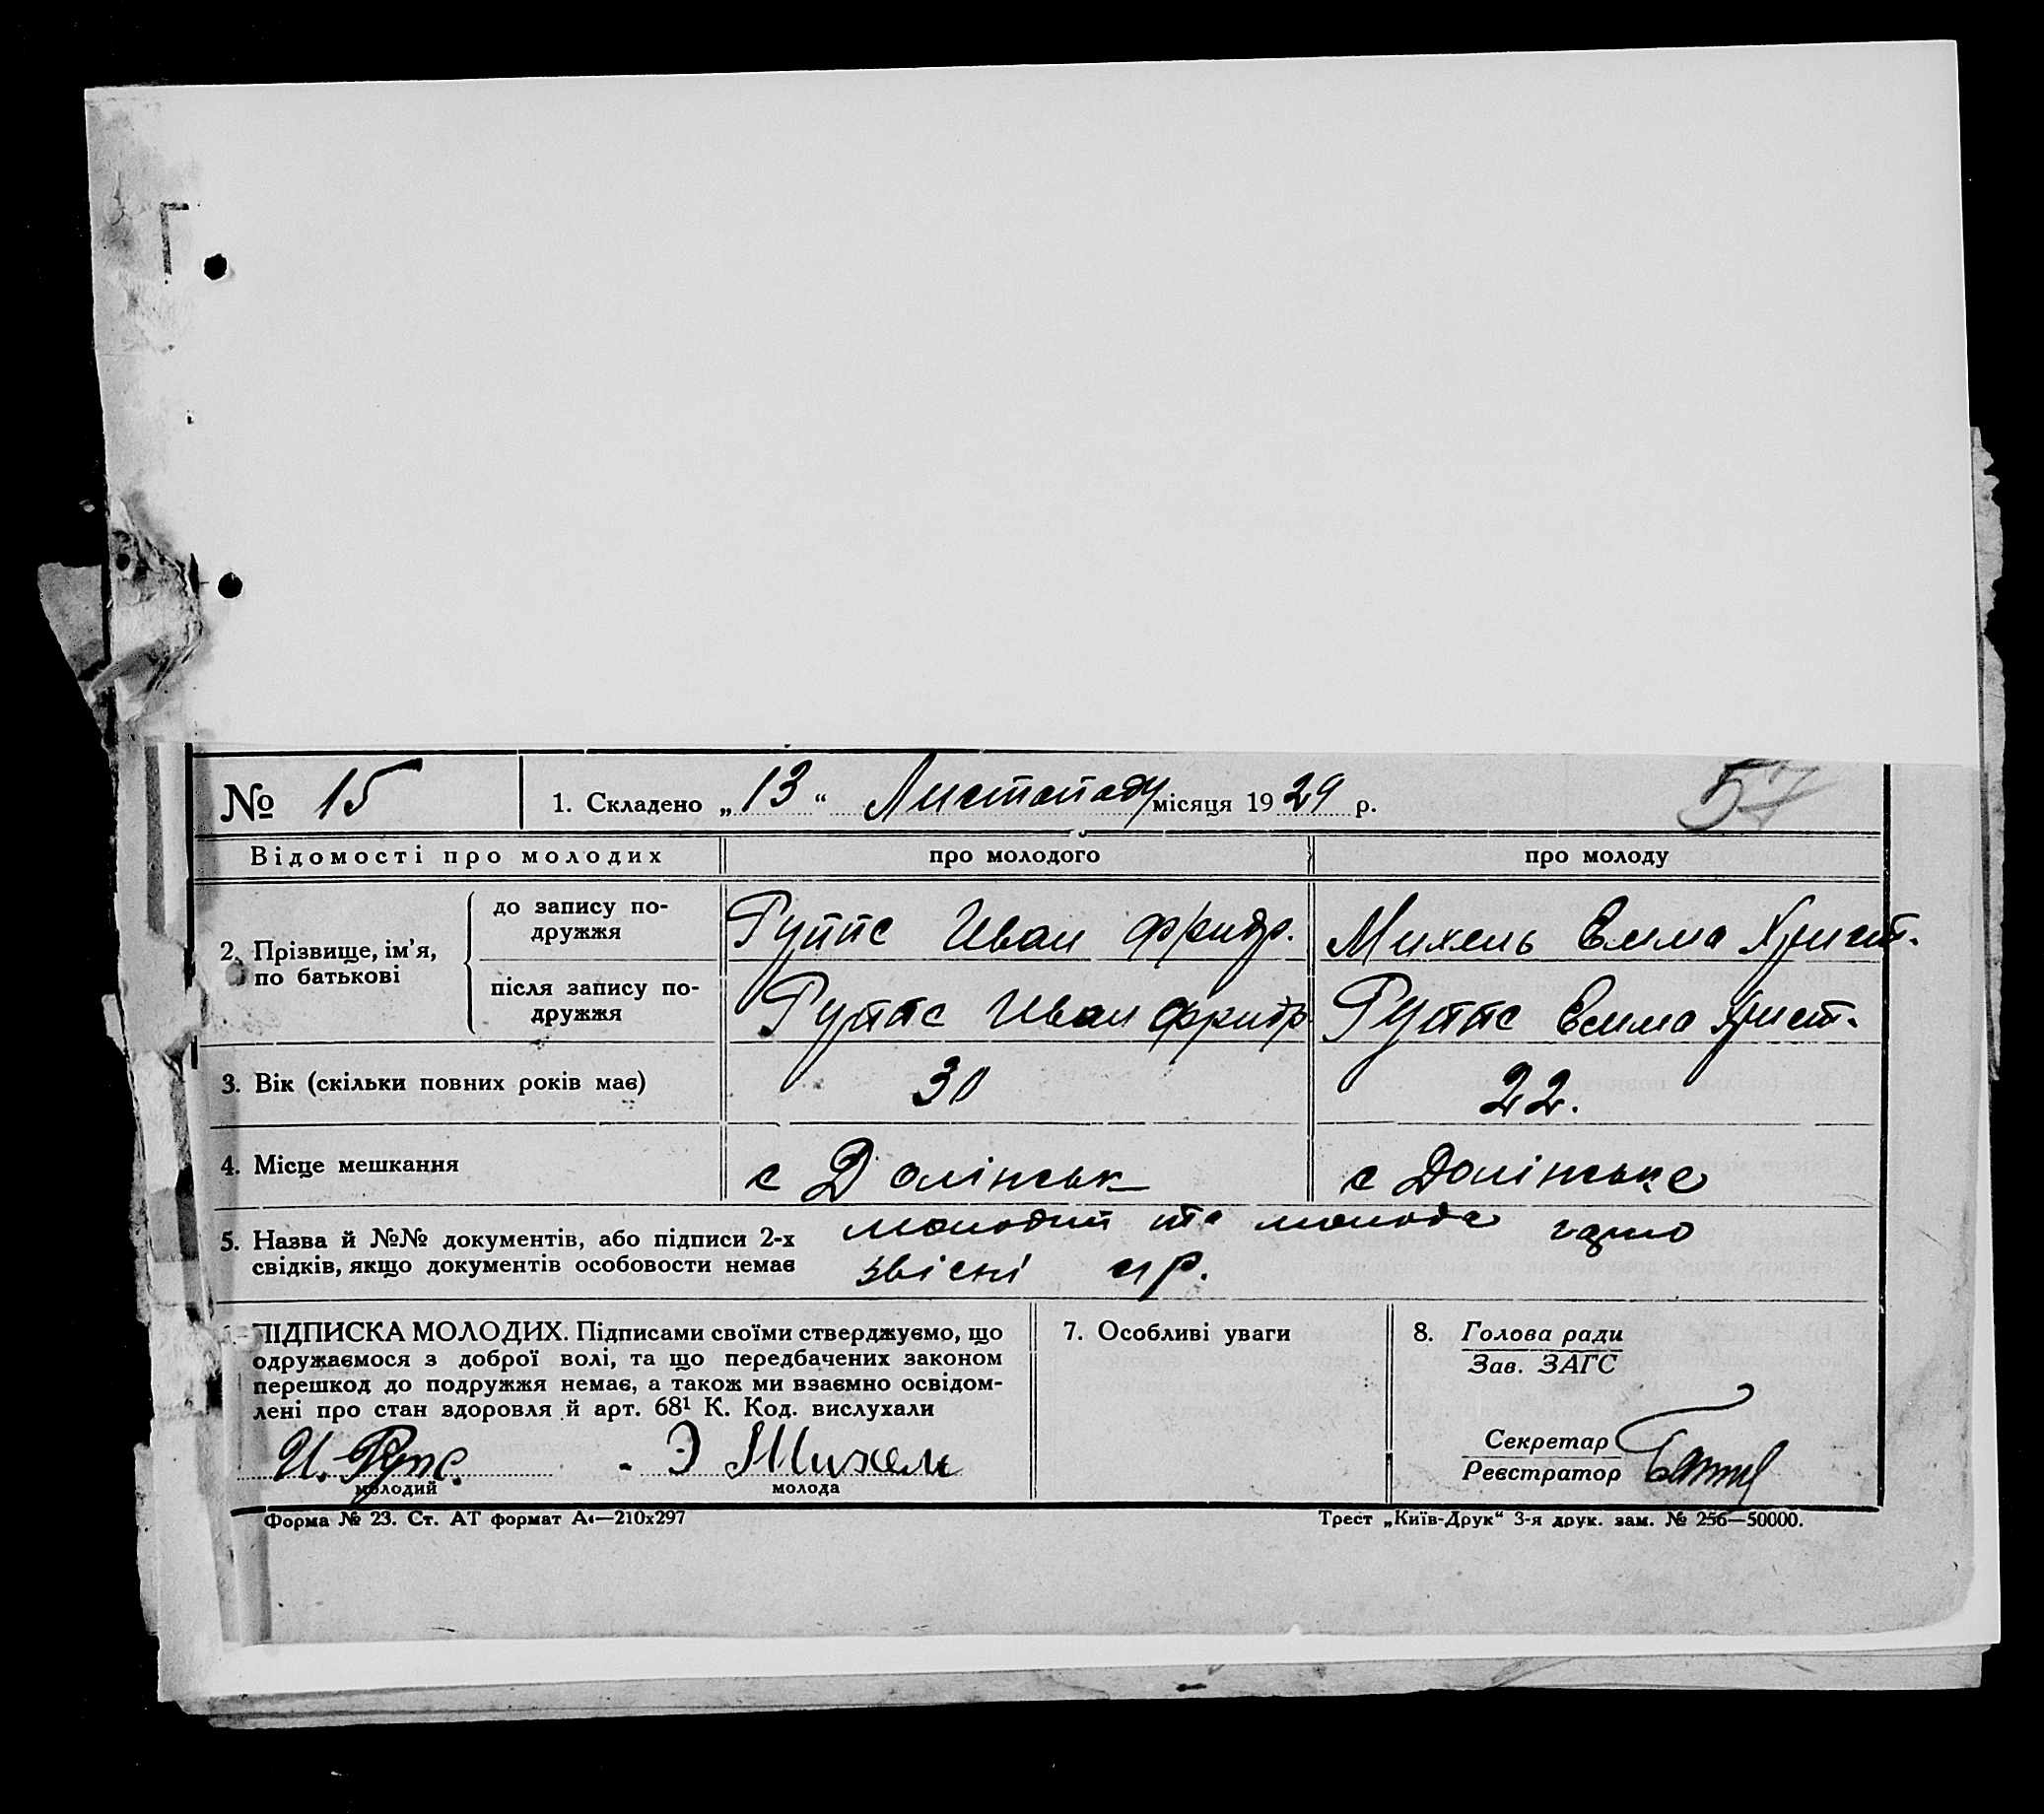 № 15
1. Складено „13“ Листопаду місяця 1929 р.
57
Відомості про молодих
про молодого
про молоду
2. Прізвище, ім’я, по батькові
до запису подружжя
Руппс Иван Фридр.
Михель Емма Христ.
після запису подружжя
Руппс Иван Фридр
Руппс Емма Христ.
3. Вік (скільки повних років має)
30
22.
4. Місце мешкання
с Долінськ
с Долінське
5. Назва й №№ документів, або підписи 2-х
свідків, якщо документів особовости немає
молодий та молода
звісні
ПІДПИСКА МОЛОДИХ. Підписами своїми стверджуємо, що
одружаємося з доброї волі, та що передбачених законом
перешкод до подружжя немає, а також ми взаємно освідом-
лені про стан здоровля й арт. 68¹ К. Код. вислухали
И. Рупс.
молодий
Э Михель
молода
7. Особливі уваги
8. Голова ради
Зав. ЗАГС
Секретар
Реєстратор
Форма № 23. Ст. АТ формат А4—210х297
Трест „Київ-Друк“ 3-я друк. зам. № 256—50000.